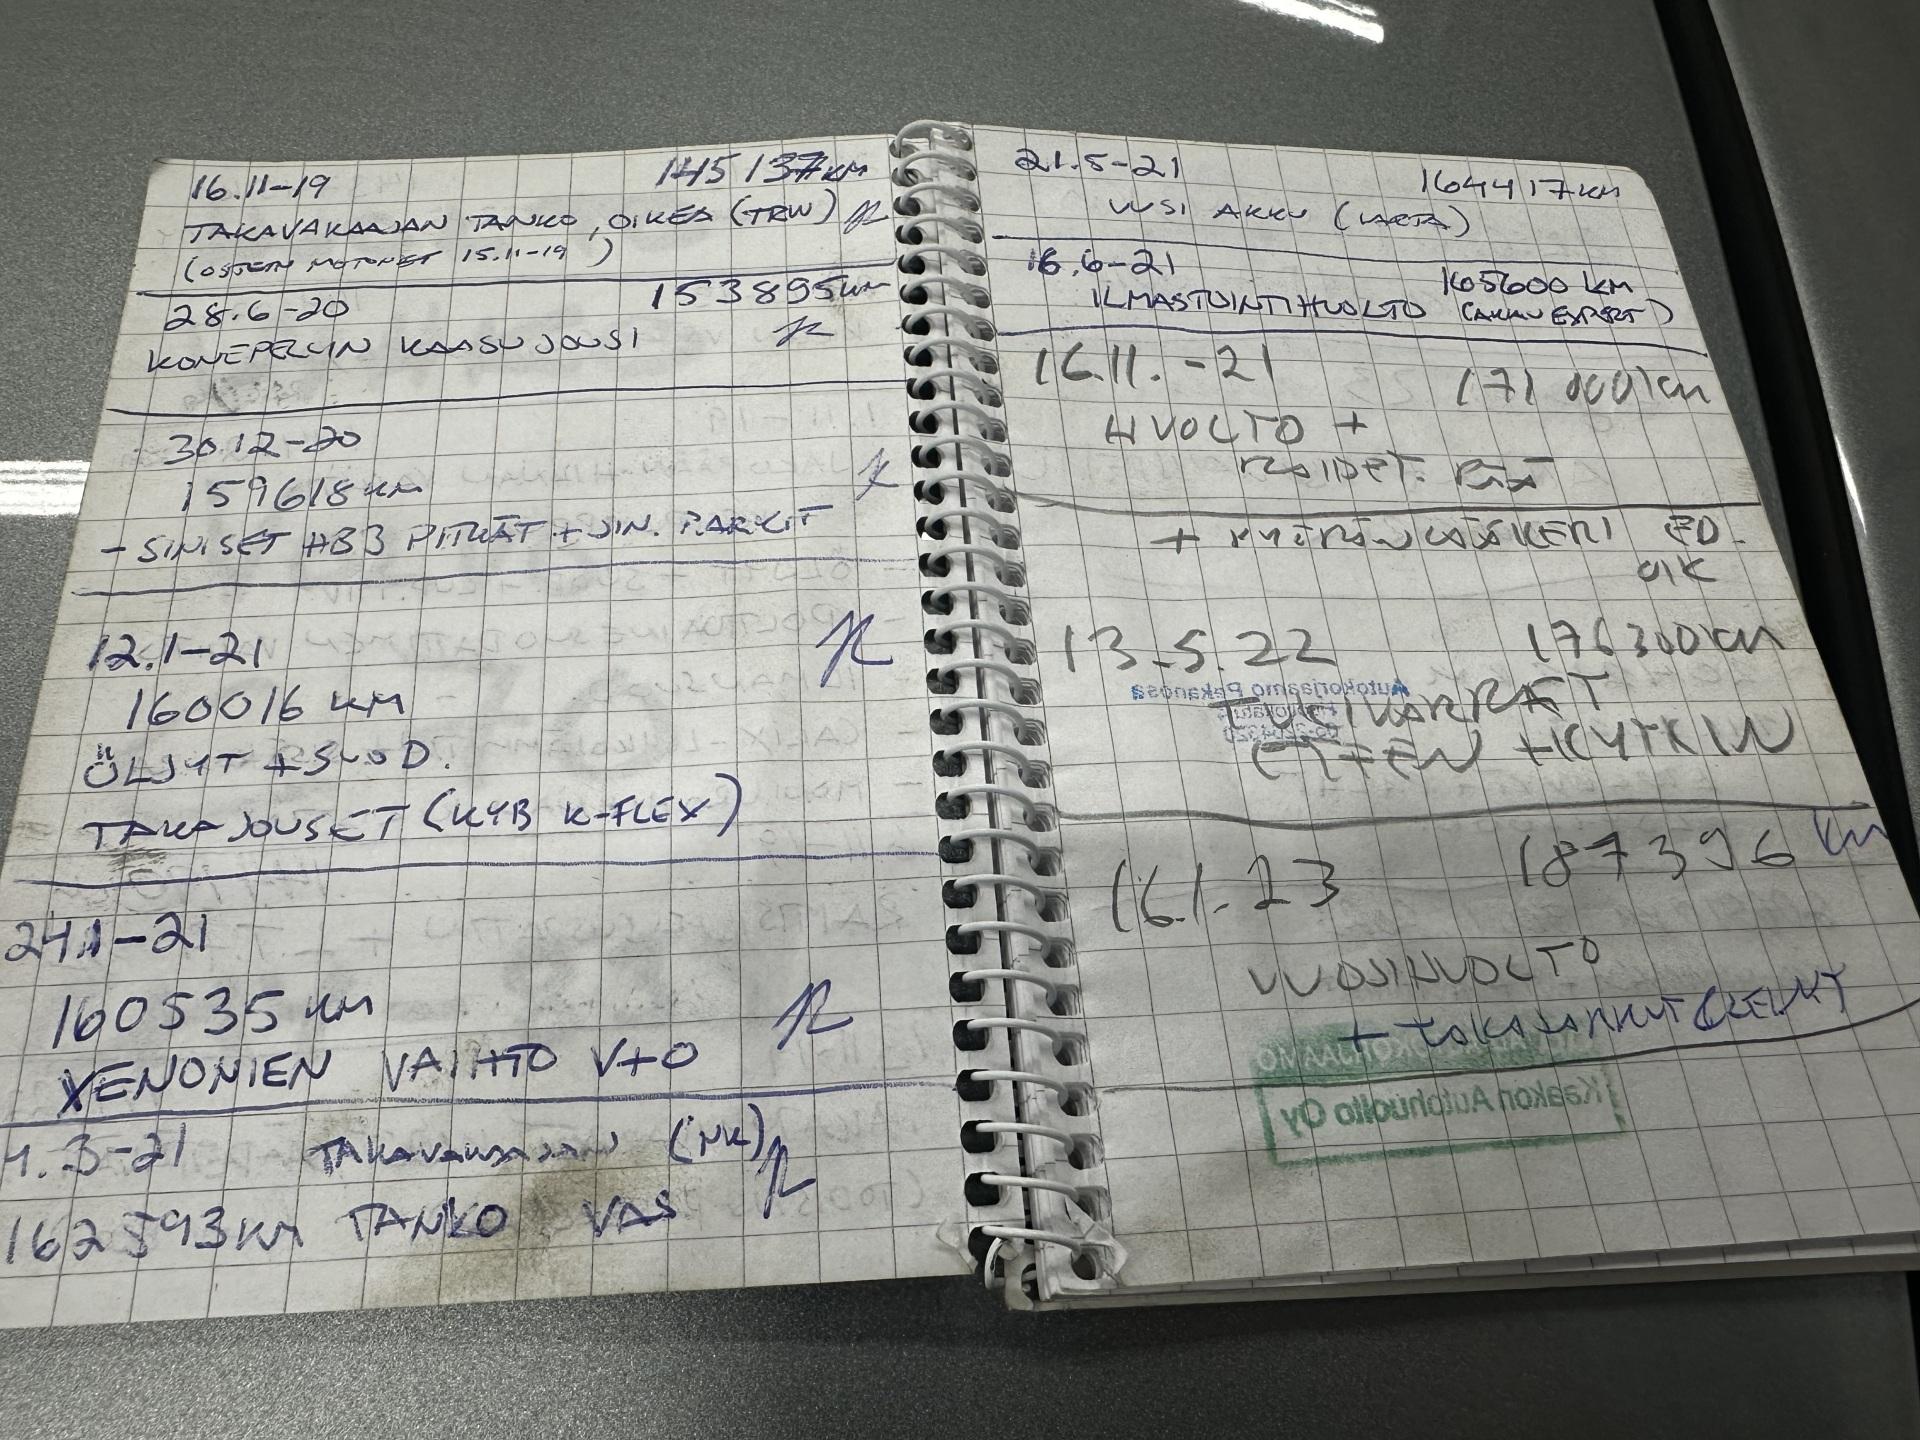 16.11-19 145137KM
TAKAVAKAAJAN TANKO, OIKEA (TRW)
(OSTETTU MOTONET 15.11-19)
28.6-20 153895KM
KONEPELLIN KAASUJOUSI
30.12-20
159618KM
- SINISET HB3 PITKÄT + SIN. PARKIT
12.1-21
160016 KM
ÖLJYT + SUOD.
TAKAJOUSET (KYB K-FLEX)
24.1-21
160535 KM
XENONIEN VAIHTO V+O
1.3-21 TAKAVAKAAJAN (NK)
162593KM TANKO VAS
21.5-21 164417KM
UUSI AKKU (VARTA)
16.6-21 165600 KM
ILMASTOINTIHUOLTO (AKAN EXPERT)
16.11.-21 171 000 km
HUOLTO +
RAIDET. PÄÄT
+ PYÖRÄNLAAKERI ED.
OIK
13.5.22 176300km
TUKIVARRET
ETEEN + KYTKIN
16.1.23 187396 km
VUOSIHUOLTO
+ TAKAJARRUT
Autokorjaamo Pekanosa
AUTOKORJAAMO
Kaakon Autohuolto Oy